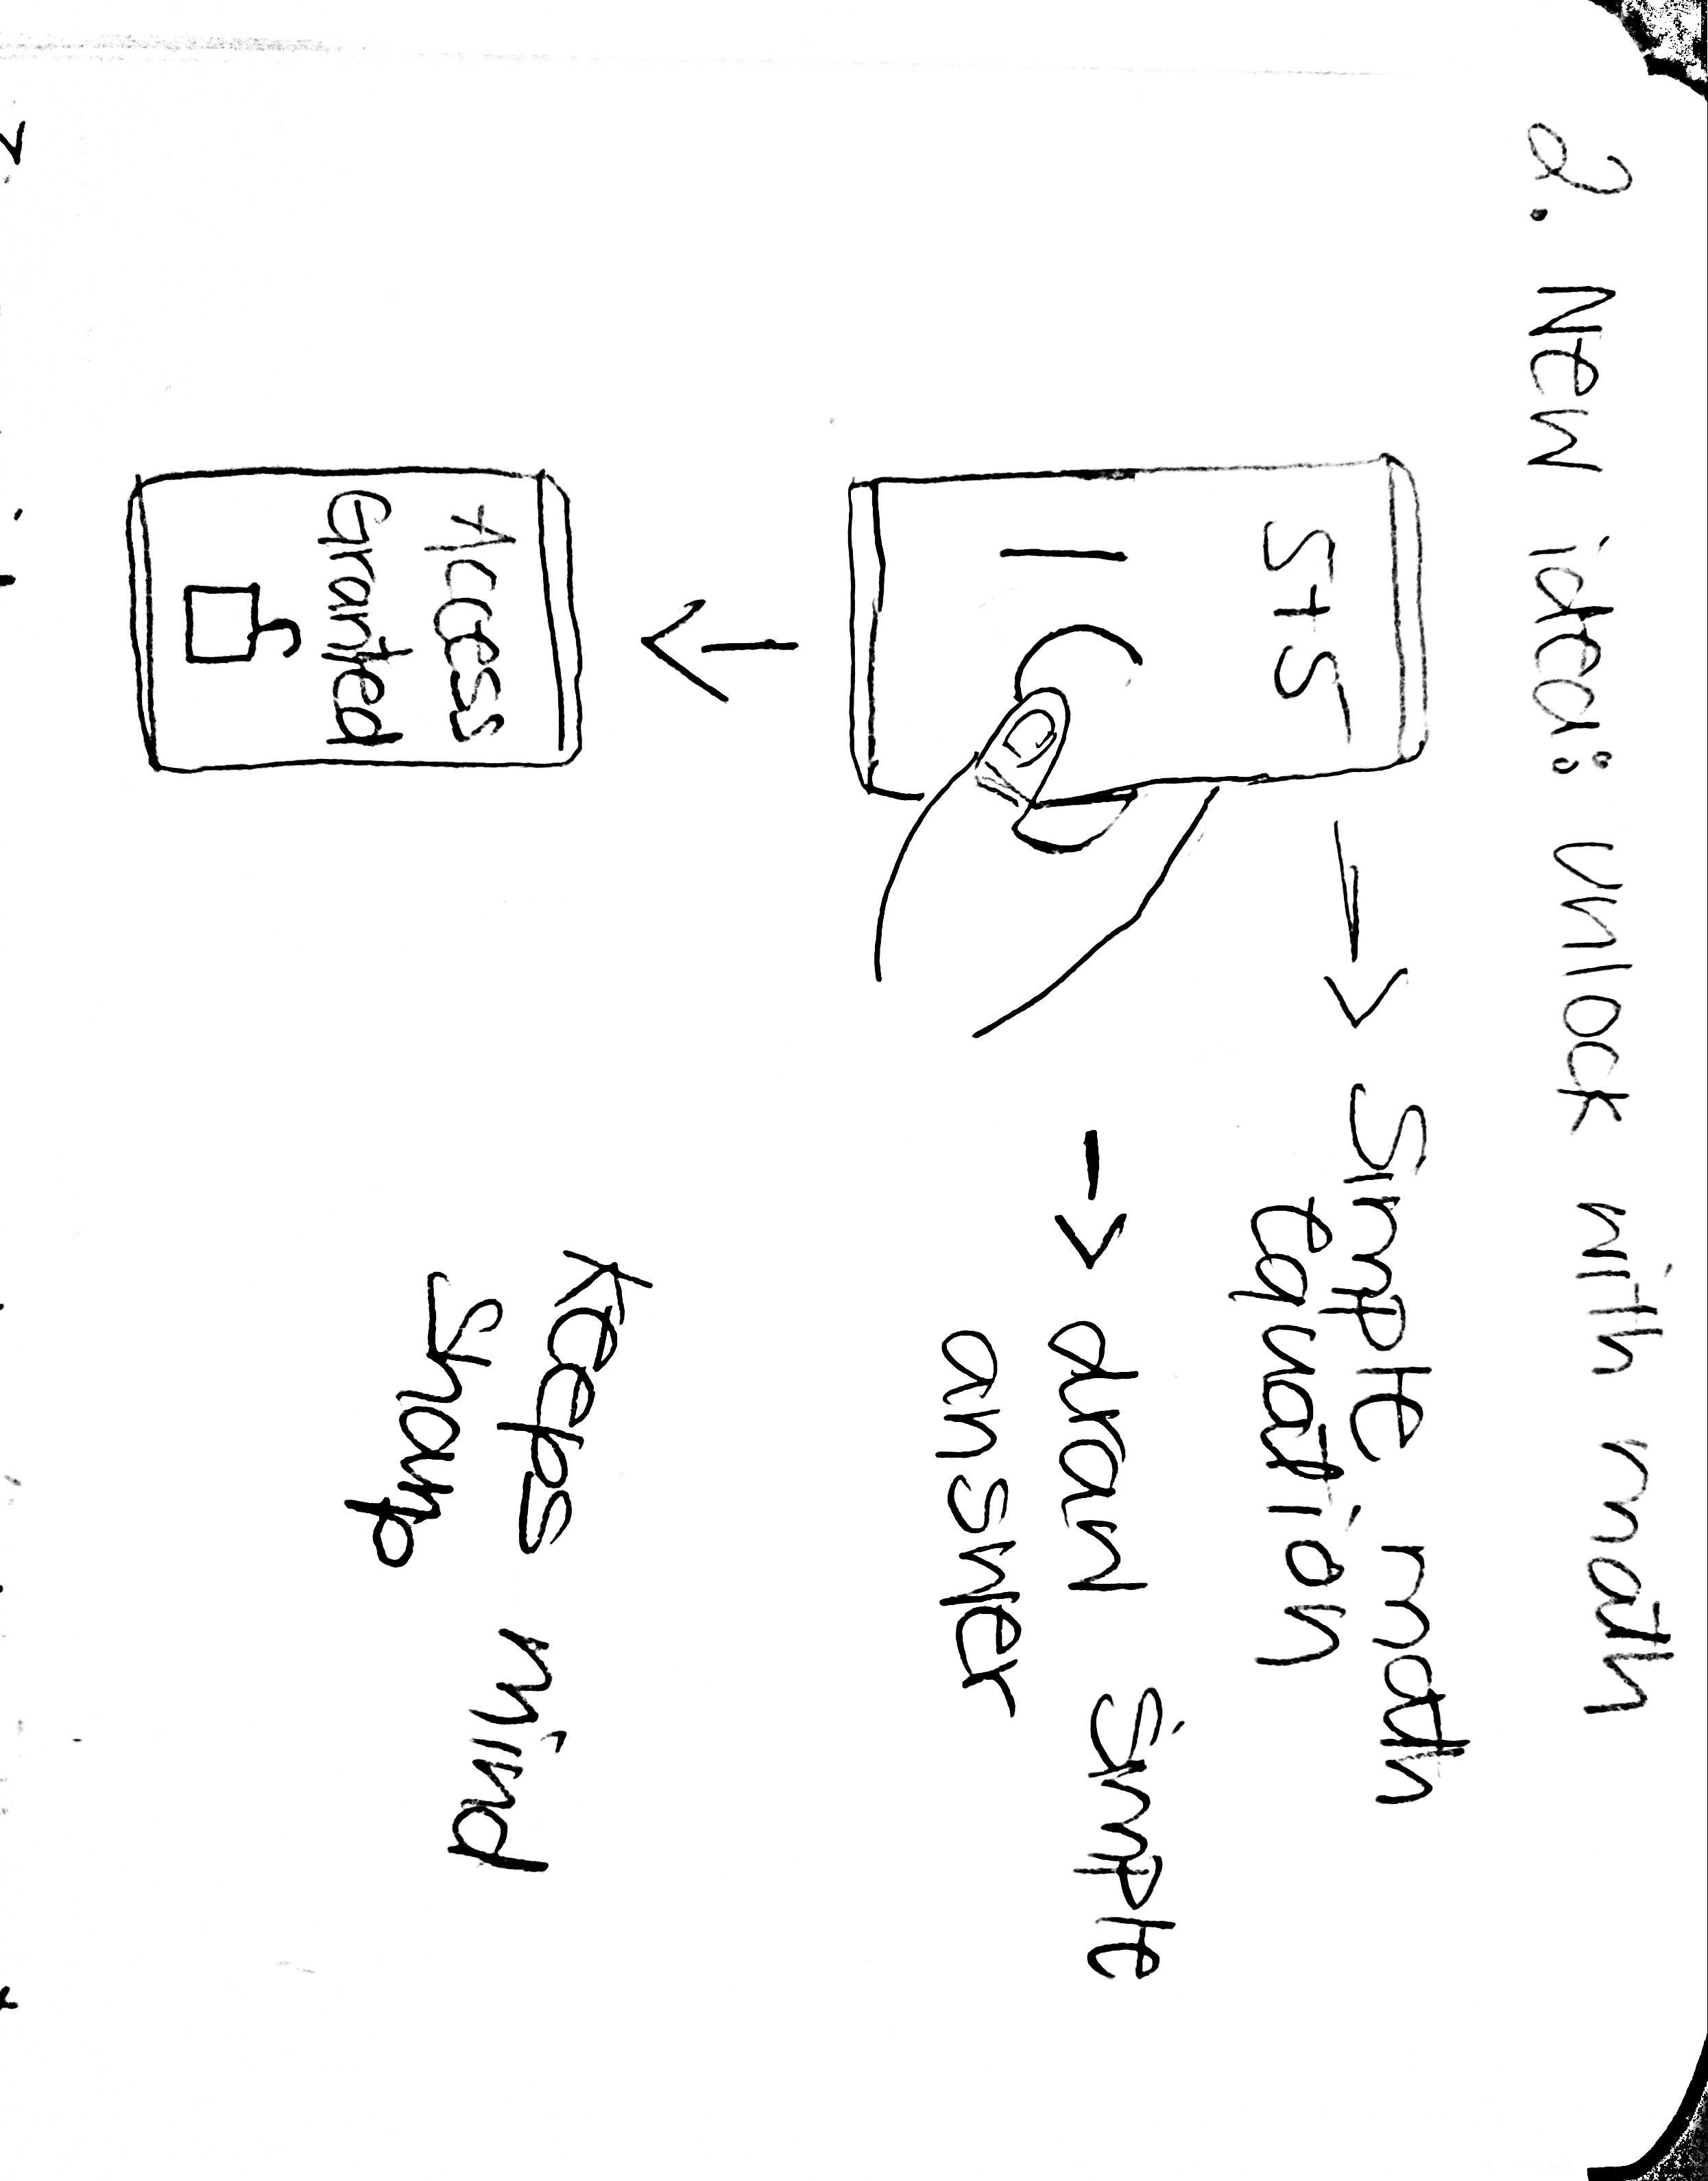 2. New idea: unlock with math
5+5
-> Simple math
equation
1 0
-> draw simple
answer
Access
Granted
keeps mind
sharp